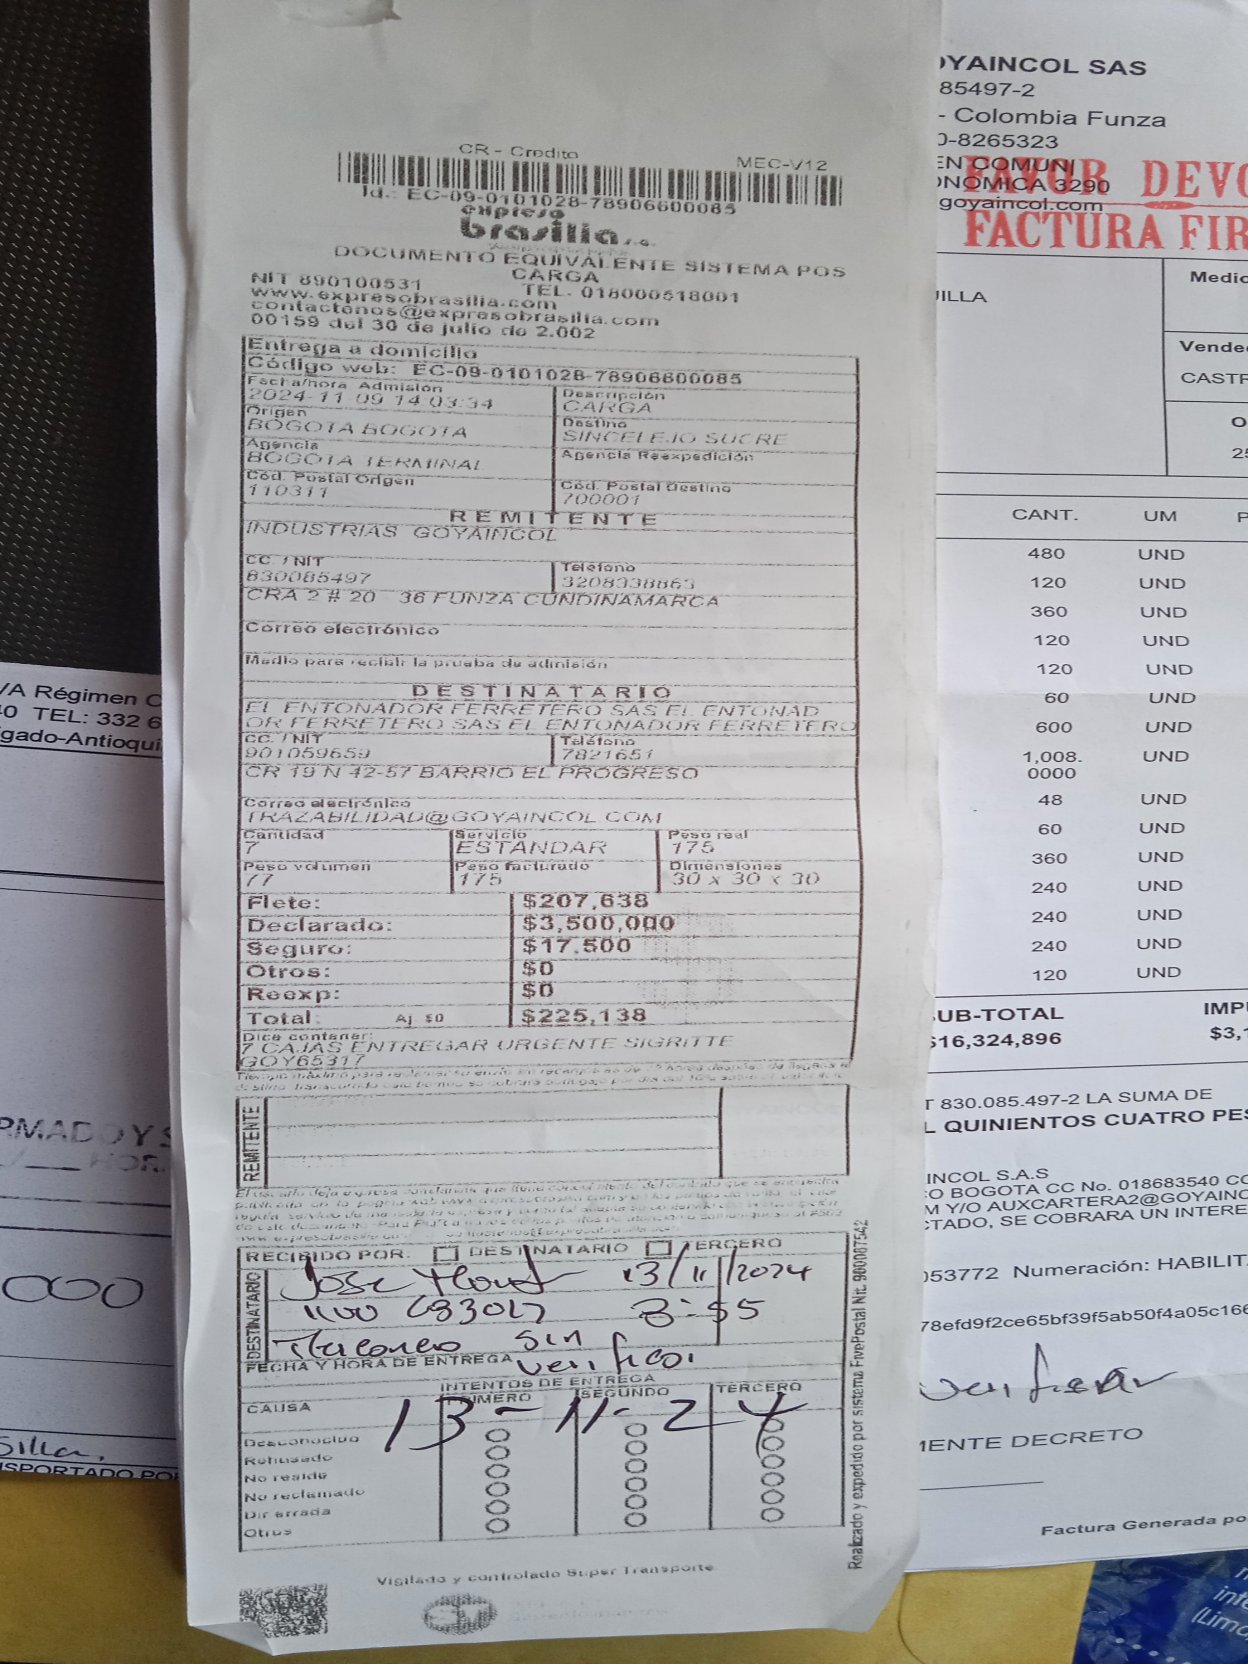 CR - Credito
MEC-V12
Id.: EC-09-0101028-78906600085
expreso
brasilia s.a.
DOCUMENTO EQUIVALENTE SISTEMA POS
CARGA
NIT 890100531
TEL. 018000518001
www.expresobrasilia.com
contactenos@expresobrasilia.com
00159 del 30 de julio de 2.002
Entrega a domicilio
Código web: EC-09-0101028-78906600085
Fecha/hora Admisión
2024-11-09 14:03:34
Descripción
CARGA
Origen
BOGOTA BOGOTA
Destino
SINCELEJO SUCRE
Agencia
BOGOTA TERMINAL
Agencia Reexpedición
Cód. Postal Origen
110311
Cód. Postal Destino
700001
REMITENTE
INDUSTRIAS GOYAINCOL
CC. / NIT
830085497
Teléfono
3208338863
CRA 2 # 20 36 FUNZA CUNDINAMARCA
Correo electrónico
Medio para recibir la prueba de admisión
DESTINATARIO
EL ENTONADOR FERRETERO SAS EL ENTONAD
OR FERRETERO SAS EL ENTONADOR FERRETERO
CC. / NIT
901059659
Teléfono
7821651
CR 19 N 42-57 BARRIO EL PROGRESO
Correo electrónico
TRAZABILIDAD@GOYAINCOL.COM
Cantidad
7
Servicio
ESTANDAR
Peso real
175
Peso volumen
77
Peso facturado
175
Dimensiones
30 x 30 x 30
Flete: $207,638
Declarado: $3,500,000
Seguro: $17,500
Otros: $0
Reexp: $0
Total: Aj. $0 $225,138
Dice contener:
7 CAJAS ENTREGAR URGENTE SIGRITTE
GOY65317
REMITENTE
RECIBIDO POR: DESTINATARIO TERCERO
DESTINATARIO
Jose 13/11/2024
8:55
sin
FECHA Y HORA DE ENTREGA
verificar
INTENTOS DE ENTREGA
CAUSA
PRIMERO
SEGUNDO
TERCERO
13-11-24
Desconocido
Rehusado
No reside
No reclamado
Dir errada
Otros
Vigilado y controlado Super Transporte
Realizado y expedido por sistema FivePostal Nit. 900087542
OYAINCOL SAS
85497-2
- Colombia Funza
0-8265323
EN COMUNI
ONOMICA 3290
goyaincol.com
FAVOR DEVO
FACTURA FIR
ILLA
Medio
Vende
CASTR
CANT. UM P
480 UND
120 UND
360 UND
120 UND
120 UND
60 UND
600 UND
1,008. UND
0000
48 UND
60 UND
360 UND
240 UND
240 UND
240 UND
120 UND
UB-TOTAL
IMPU
$16,324,896
T 830.085.497-2 LA SUMA DE
L QUINIENTOS CUATRO PES
INCOL S.A.S
O BOGOTA CC No. 018683540 CO
M Y/O AUXCARTERA2@GOYAINC
CTADO, SE COBRARA UN INTERE
053772 Numeración: HABILIT
78efd9f2ce65bf39f5ab50f4a05c166
IENTE DECRETO
Factura Generada po
VA Régimen C
0 TEL: 332 6
gado-Antioqui
RMADO Y S
000
SPORTADO PO
inte
(Limo